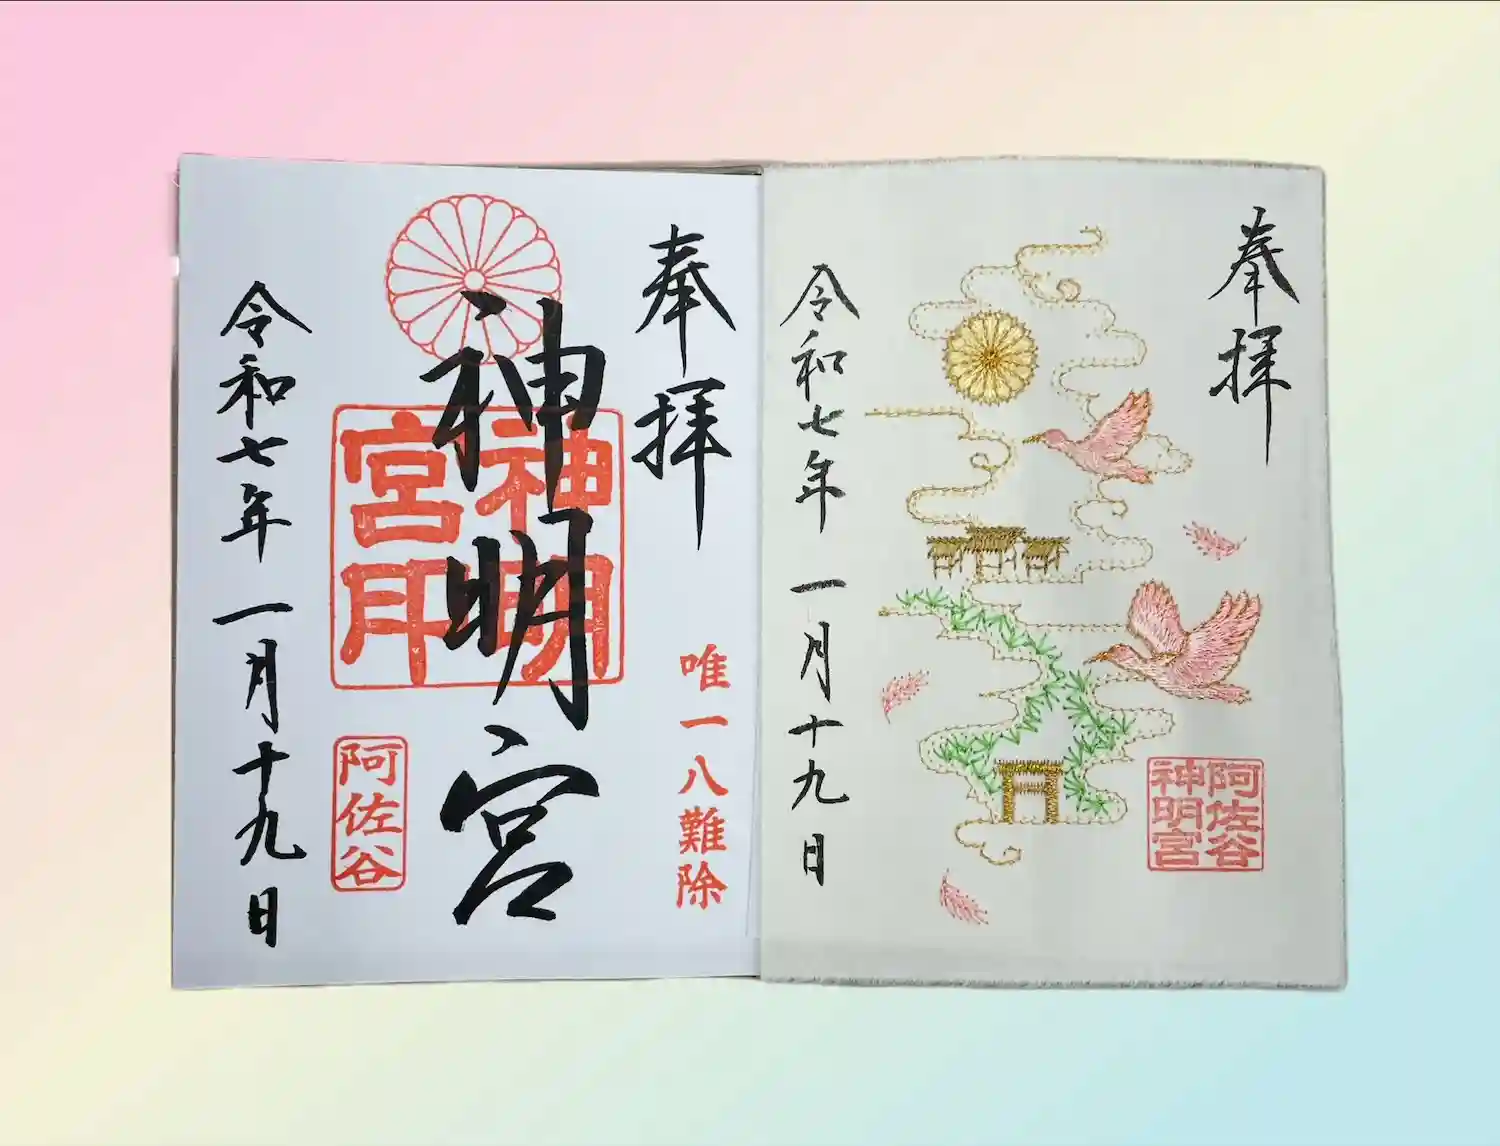 奉拝
唯一八難除
神明宮
神明宮印
阿佐谷
令和七年 一月十九日
奉拝
阿佐谷神明宮
令和七年 一月十九日